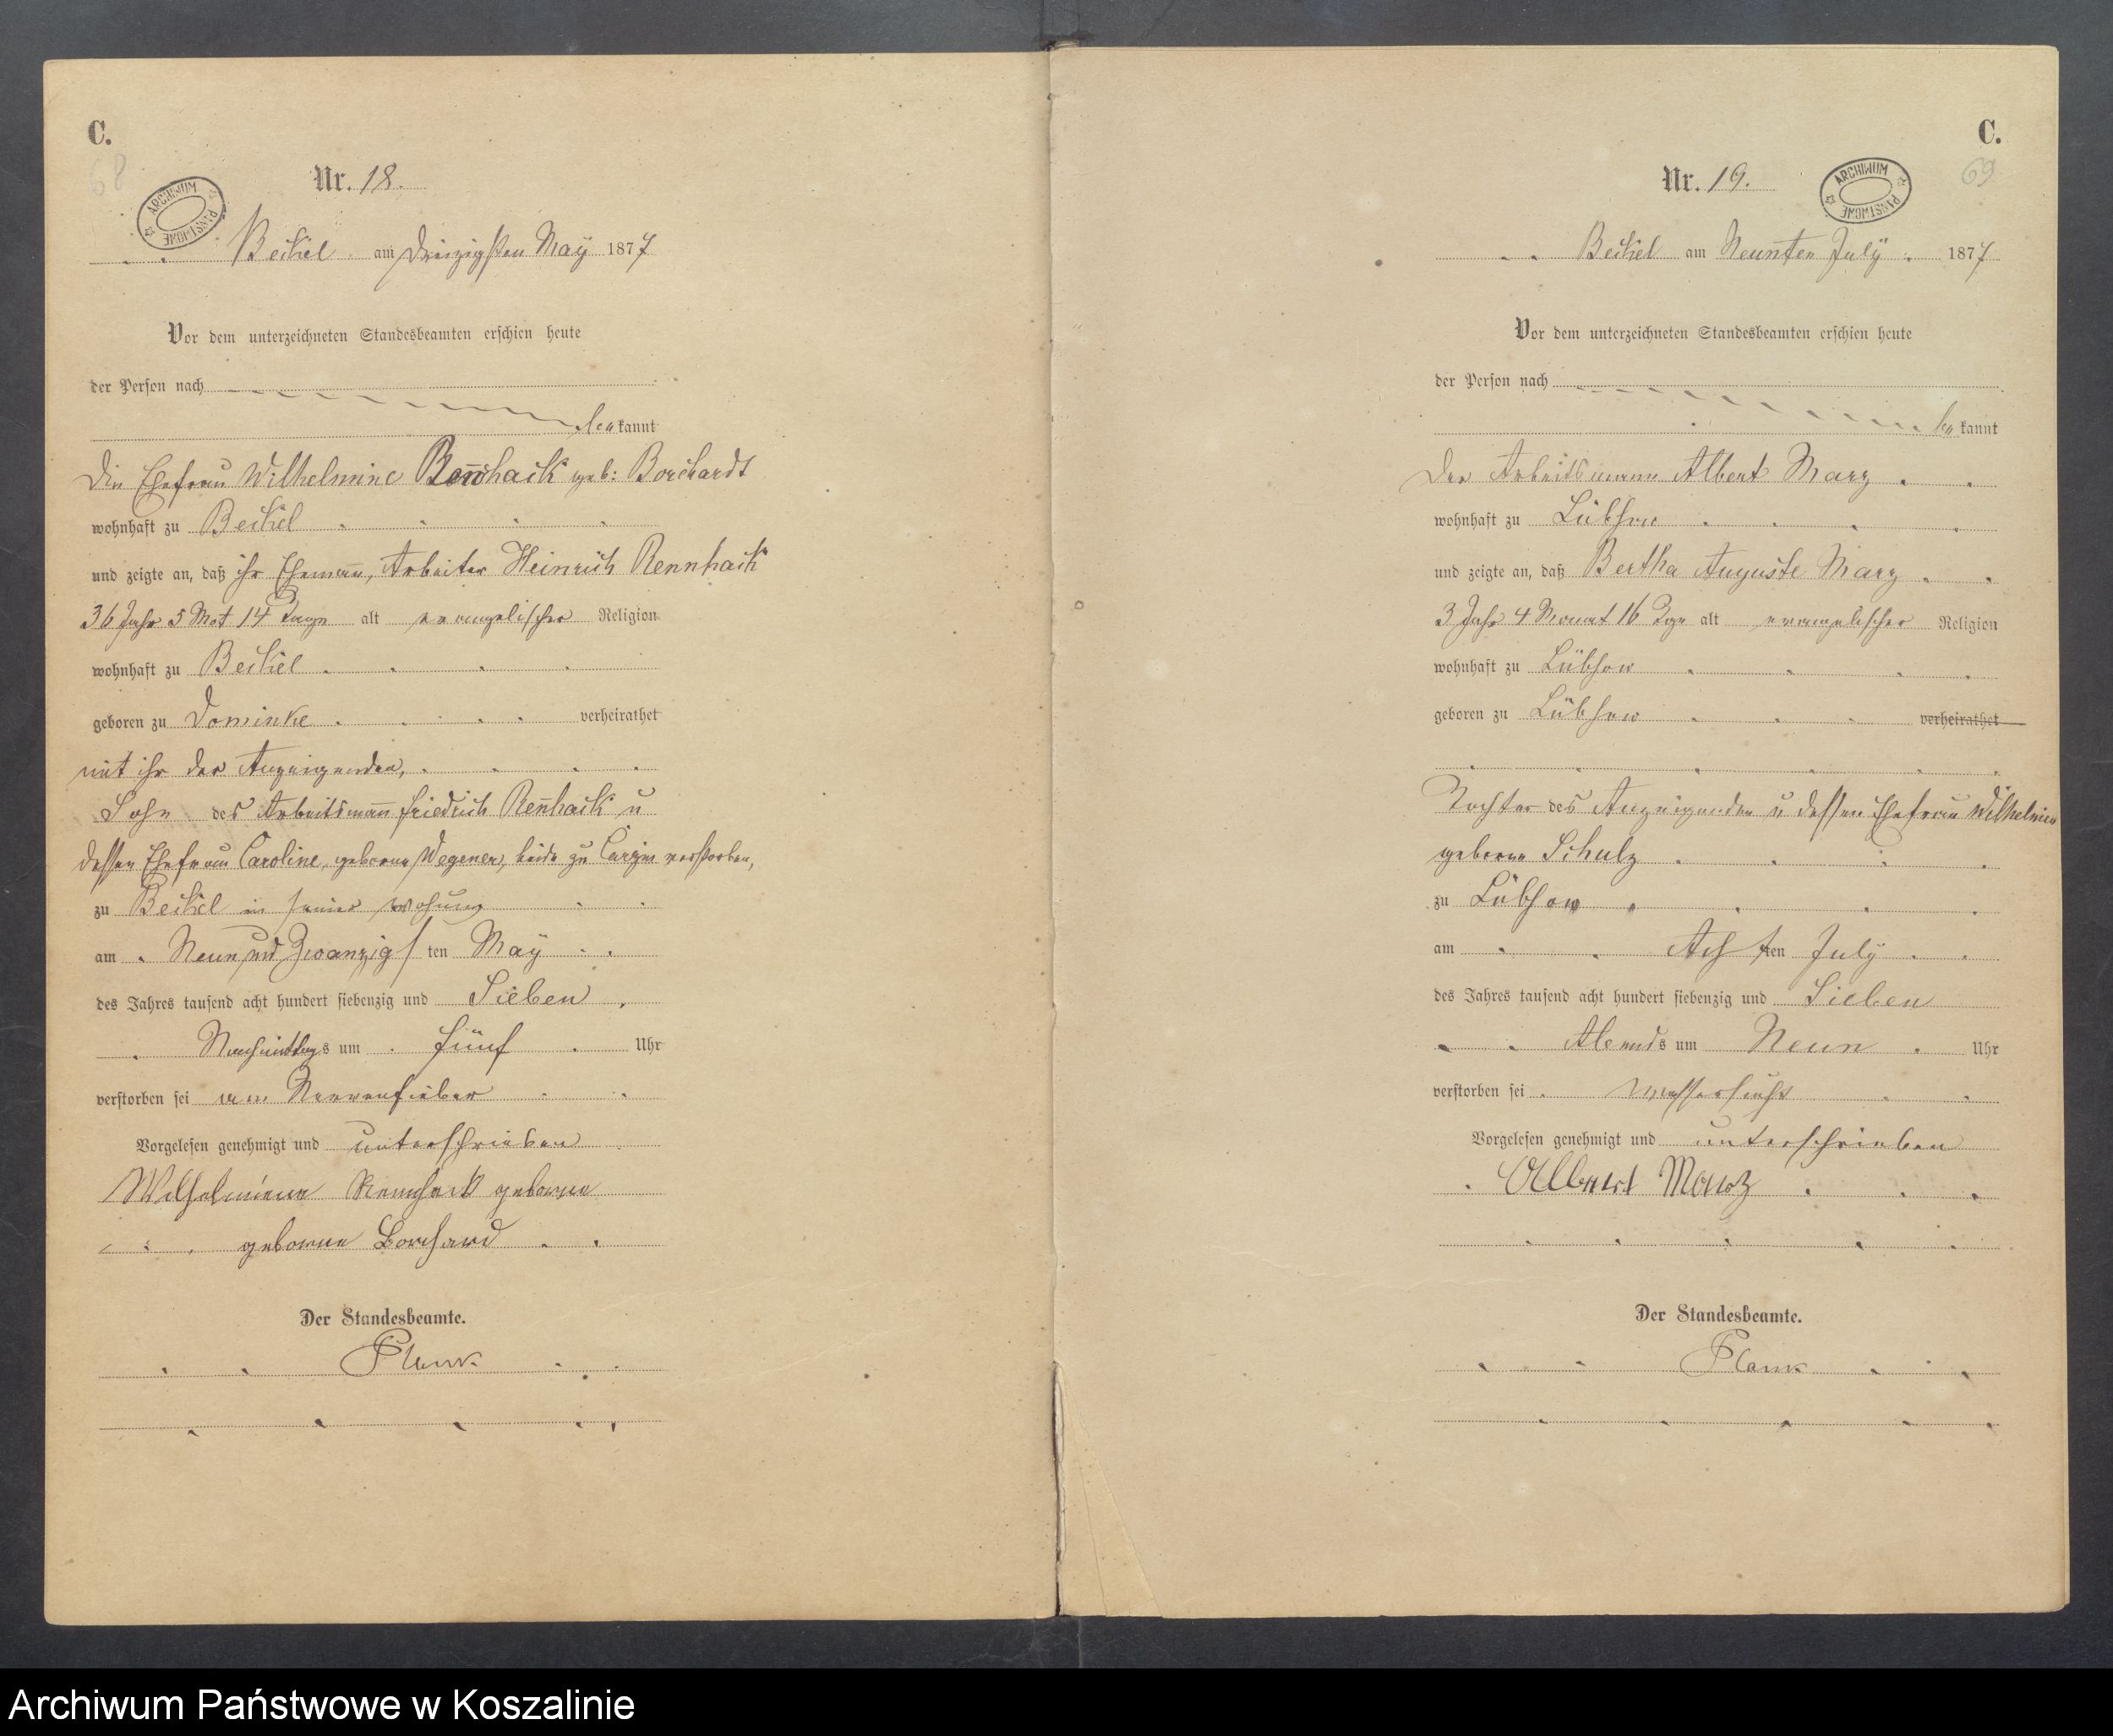 C.
68
Nr. 18.
ARCHIWUM PAŃSTWOWE
Beckel am Dreizigsten May 1877
Vor dem unterzeichneten Standesbeamten erschien heute
der Person nach
bekannt
Die Ehefrau Wilhelmine Rennhack geb: Borchardt
wohnhaft zu Beckel
und zeigte an, daß ihr Ehemann, Arbeiter Heinrich Rennhack
36 Jahr 5 Mot 14 Tage alt evangelischer Religion
wohnhaft zu Beckel
geboren zu Dominke verheirathet
mit ihr der Anzeigenden,
Sohn des Arbeitsmann Friedrich Reñhack u
dessen Ehefrau Caroline, geborne Wegener, beide zu Carzin verstorben,
zu Beckel in seiner Wohnung
am Neun und Zwanzigsten May
des Jahres tausend acht hundert siebenzig und Sieben
Nachmittags um fünf Uhr
verstorben sei am Nervenfieber
Vorgelesen genehmigt und unterschrieben
Wilhelmiene Rennhack geborne
geborne Borchard
Der Standesbeamte.
Plank
C.
69
Nr. 19.
ARCHIWUM PAŃSTWOWE
Beckel am Neunten July 1877
Vor dem unterzeichneten Standesbeamten erschien heute
der Person nach
bekannt
Der Arbeitsmann Albert Marz
wohnhaft zu Lübsow
und zeigte an, daß Bertha Auguste Marz
3 Jahr 4 Monat 16 Tge alt evangelischer Religion
wohnhaft zu Lübsow
geboren zu Lübsow verheirathet
Tochter des Anzeigenden u dessen Ehefrau Wilhelmine
geborne Schulz
zu Lübsow
am Achten July
des Jahres tausend acht hundert siebenzig und Sieben
Abends um Neun Uhr
verstorben sei Wassersucht
Vorgelesen genehmigt und unterschrieben
Albert Marz
Der Standesbeamte.
Plank
Archiwum Państwowe w Koszalinie